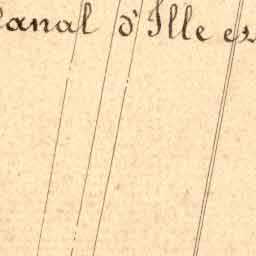 Canal d'Ille et